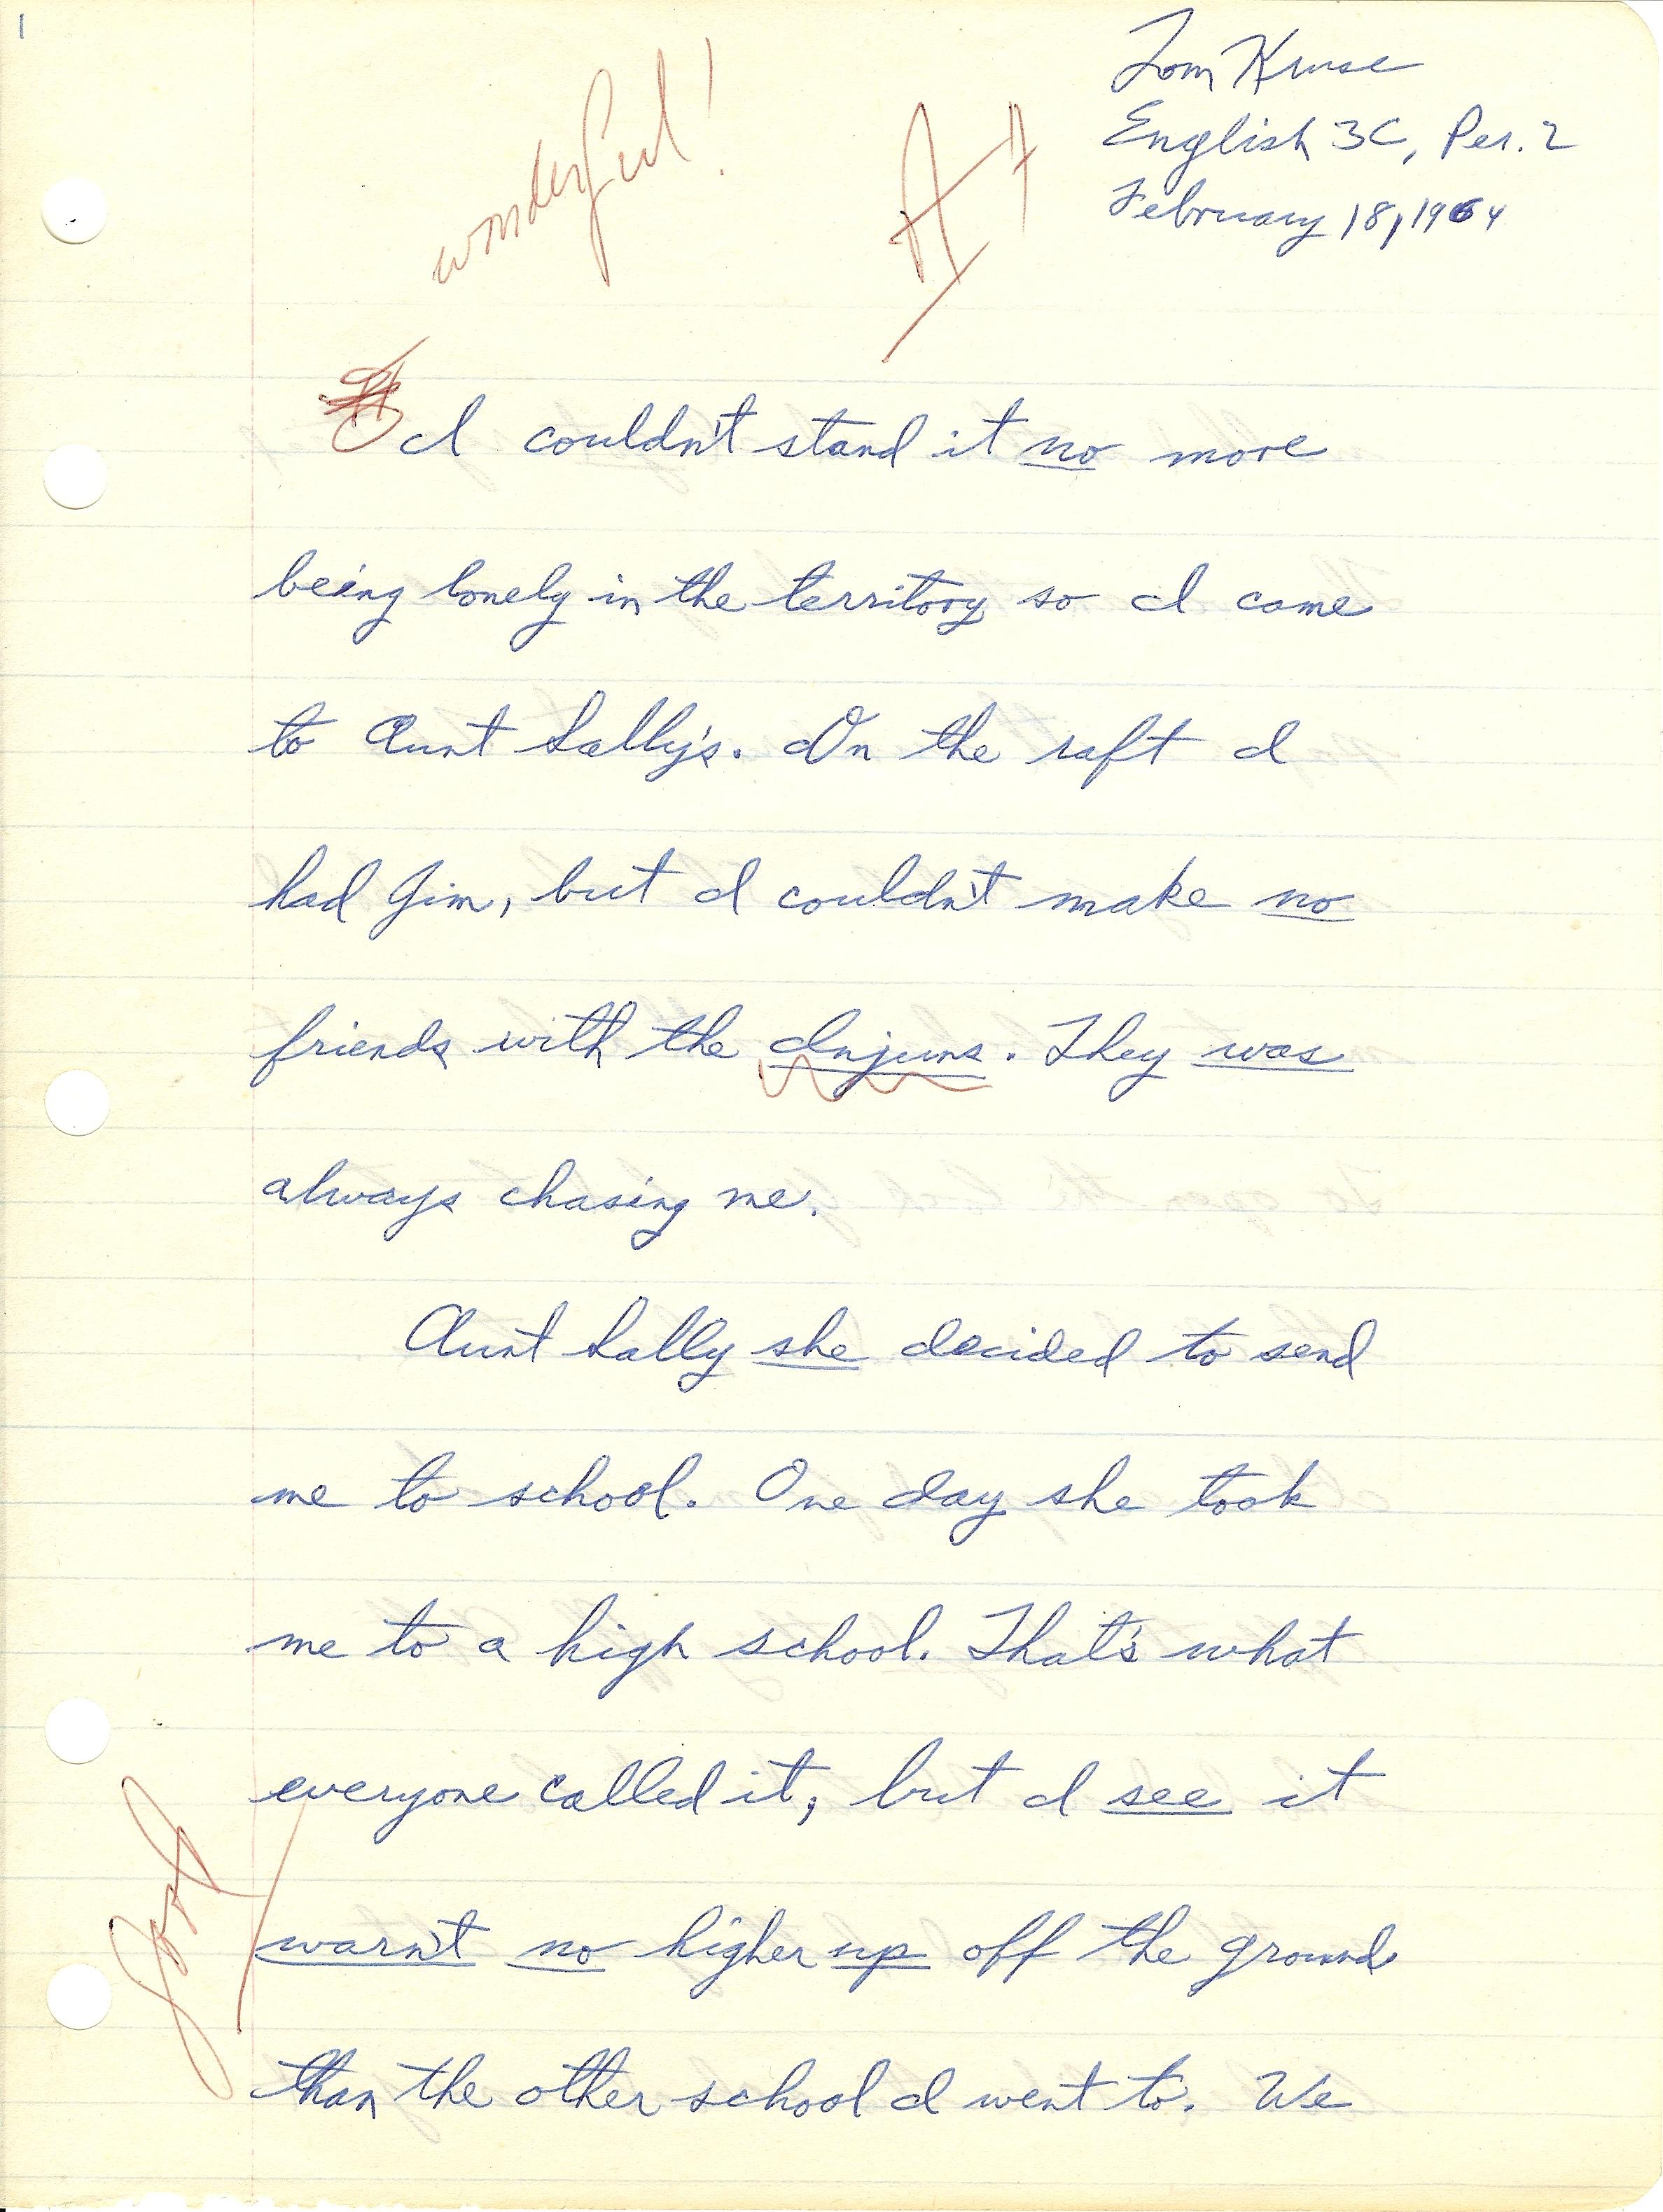 1
Tom Kruse
English 3C, Per. 2
February 18, 1964
wonderful!
A+
I couldn't stand it no more
being lonely in the territory so I came
to Aunt Sally's. On the raft I
had Jim, but I couldn't make no
friends with the Injuns. They was
always chasing me.
Aunt Sally she decided to send
me to school. One day she took
me to a high school. That's what
everyone called it, but I see it
warn't no higher up off the ground
than the other school I went to. We
good